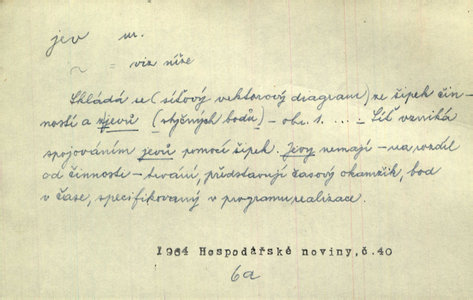 jev m.
~ = viz níže
Skládá se (síťový vektorový diagram) ze šipek čin-
ností a zjevů (styčných bodů) – obr. 1. ... – Síť vzniká
spojováním jevů pomocí šipek. Jevy nemají – na rozdíl
od činnosti – trvání, představují časový okamžik, bod
v čase, specifikovaný v programu realizace.
1964 Hospodářské noviny, č. 40
6a